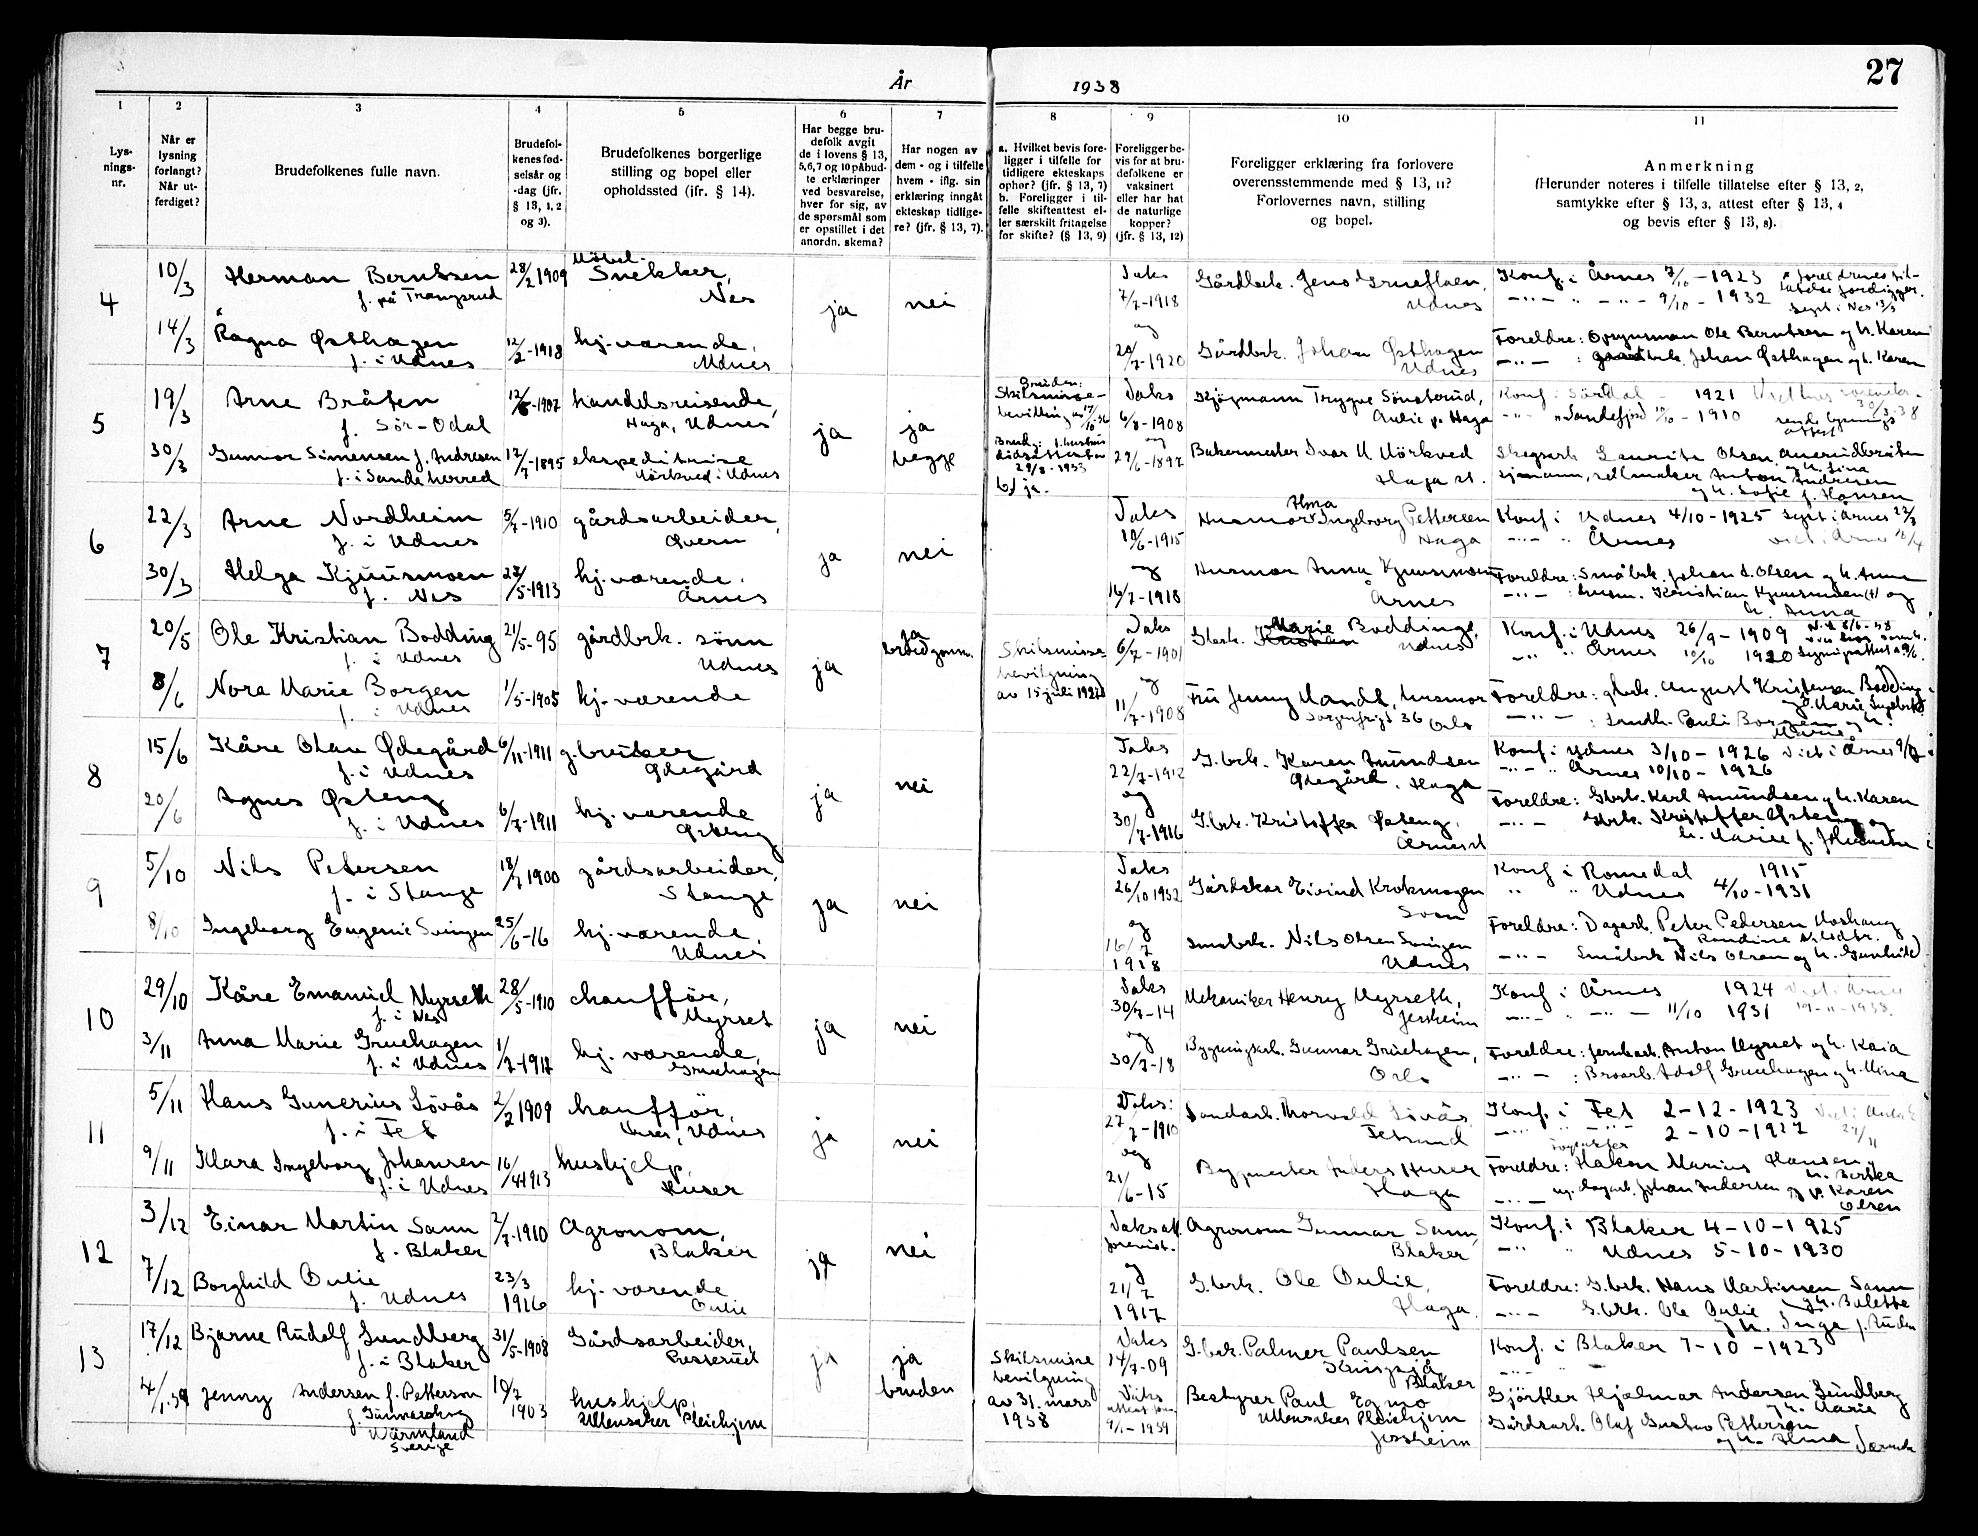 27
År 1938
1
Lys-
nings-
nr.
2
Når er
lysning
forlangt?
Når ut-
ferdiget?
3
Brudefolkenes fulle navn.
4
Brudefol-
kenes fød-
selsår og
-dag (jfr.
§ 13, 1, 2
og 3).
5
Brudefolkenes borgerlige
stilling og bopel eller
opholdssted (jfr. § 14).
6
Har begge bru-
defolk avgit
de i lovens § 13,
5, 6, 7 og 10 påbud-
te erklæringer
ved besvarelse,
hver for sig, av
de spørsmål som
er opstillet i det
anordn. skema?
7
Har nogen av
dem - og i tilfelle
hvem - iflg. sin
erklæring inngåt
ekteskap tidlige-
re? (jfr. § 13, 7).
8
a. Hvilket bevis fore-
ligger i tilfelle for
tidligere ekteskaps
ophør? (jfr. § 13, 7)
b. Foreligger i til-
felle skifteattest el-
ler særskilt fritagelse
for skifte? (§ 13, 9)
9
Foreligger be-
vis for at bru-
defolkene er
vaksinert
eller har hat
de naturlige
kopper?
(jfr. § 13, 12)
10
Foreligger erklæring fra forlovere
overensstemmende med § 13, 11?
Forlovernes navn, stilling
og bopel.
11
Anmerkning
(Herunder noteres i tilfelle tillatelse efter § 13, 2,
samtykke efter § 13, 3, attest efter § 13, 4
og bevis efter § 13, 8).
4
10/3 Herman Berntsen 28/2 1909 Møbel-
Snekker,
f. på Trangsrud Nes
ja nei
Vaks
7/7-1918
Udnes
Konf. i Årnes 7/10-1923
9/10-1932
14/3 Ragna Østhagen 12/2-1918 hj. værende,
f. i Udnes Udnes
og
20/7-1920
Gårdbrk. Johan Østhagen
Udnes
Foreldre: Ole Berntsen og h. Karen
Johan Østhagen og h. Karen
5
19/3 Arne Bråten 1907 handelsreisende,
f. Sør-Odal Haga, Udnes
ja ja
begge
Bruden:
Skilsmisse-
bevilling
Vaks
6/8-1908
Trygve Sønsterud,
Aulie p. Haga
Konf. i Sørdal 1921
Sandefjord 1910
30/3 Gunvor Simensen f. Andresen 17/7-1895 ekspeditrise
f. i Sandeherred Mörkved i Udnes
29/8-1933
b) ja.
og
29/6-1897
Bakermester Ivar M Mörkved
Haga st.
Laurits Olsen
Anton Andresen
og h. Sofie f. Hansen
6
22/3 Arne Nordheim 5/7-1910 gårdsarbeider,
f. i Udnes Overn
ja nei
Vaks
1915
Alma
Husmor Ingeborg Pettersen
Haga
Konf. i Udnes 4/10-1925
Årnes
30/3 Helga Kjuusmoen 1913 hj. værende.
f. Nes Årnes
og
16/7-1918
Husmor Anna Kjuusmoen
Årnes
Foreldre: Småbrk. Johan L. Olsen og h. Anna
h. Anna
7
20/5 Ole Kristian Bodding 21/5-95 gårdbrk. sønn
f. i Udnes Udnes
ja ja
brudgom.
Skilsmisse-
bevilgning
av 15 juli
Vaks
6/7-1901
Gbrk. Marie Bodding,
Udnes
Konf. i Udnes 26/9-1909
Årnes 10/10 1920
8/6 Nora Marie Borgen 1/5-1905 hj. værende
f. i Udnes
og
11/7-1908
Fru Jenny Mandt, husmor
Sorgenfrigt 36 Oslo
Foreldre: gbrk. August Kristensen Bodding
og h. Marie
Pauli Borgen og h.
8
15/6 Kåre Olav Ødegård 6/11-1911 g. bruker
f. i Udnes Ødegård
ja nei
Vaks
22/7-1912
G. brk. Karen Amundsen
Ødegård, Haga
Konf. i Udnes 3/10-1926 Viet i Årnes
Årnes 10/10-1926
20/6 Agnes Østeng 6/7-1911 hj. værende
f. i Udnes Østeng
og
30/7-1916
G. brk. Kristoffer Østeng,
Årnes st
Foreldre: Gbrk. Karl Amundsen og h. Karen
Gbrk. Kristoffer Østeng og
h. Marie f.
9
5/10 Nils Petersen 1900 gårdsarbeider,
f. i Stange Stange
ja nei
Vaks
26/10 1932
Gårdskar Eivind Krokmogen
Konf i Romedal 1915
Udnes 4/10-1931
8/10 Ingeborg Eugenie Svingen 25/6-16 hj. værende,
Udnes
og
16/7
1918
småbrk. Nils Olsen Svingen
Udnes
Foreldre: Dagarb. Peter Pedersen
Småbrk Nils Olsen og h. Gunhild
10
29/10 Kåre Emanuel Myrseth 28/5-1910 chauffør,
f. i Nes Myrset
ja nei
Vaks
30/7-14
Mekaniker Henry Myrseth,
Jessheim
Konf i Årnes 1924 Viet i Årnes
11/10 1931 19-11-1938
3/11 Anna Marie Gruehagen hj. værende,
f. i Udnes Gruehagen
og
30/7-18
Bygningsarb. Gunnar Gruehagen,
Oslo
Foreldre: Anton Myrset og h. Kaia
Adolf Gruehagen og h. Mina
11
5/11 Hans Gunerius Lövås 2/2 1909 chaufför,
f. i Fet Huser, Udnes
ja nei
Vaks:
27/7-1910
Thorvald Lövås
Fetsund
Konf. i Fet 2-12-1923
2-10-1927
9/11 Klara Ingeborg Johansen 16/4 1913 hushjelp,
f. i Udnes Huser
og
21/6-15
Byggmester Anders Huser
Haga
Foreldre: Håkon Marius Hansen
dagarb. Johan Andersen og h. Karen
Olsen
12
3/12 Einar Martin Sann 2/7-1910 Agronom,
f. Blaker Blaker
ja nei
Vaksatt
Agronom Gunnar Sann,
Blaker
Konf. i Blaker 4-10-1925
Udnes 5-10-1930
7/12 Borghild Aulie 23/3
1916 hj. værende
f. Udnes Aulie
og
21/7
1917
G. brk. Ole Aulie,
Haga.
Foreldre: G. brk. Hans Martinsen Sann
G. brk. Ole Aulie
og h. Inga f.
13
17/12 Bjarne Rudolf Lundberg 31/5-1908 Gårdsarbeider,
f. i Blaker
ja ja
bruden
Skilsmisse
bevilgning
av 31. mars
1938
Vaks
14/7-09
G. brk. Palmer Paulsen
Blaker
Konf. i Blaker 7-10-1923
4/1-39 Jenny Andersen f. Petterson 10/7
1903 hushjelp,
f. Gunnarskog
Wärmland
Sverige
Ullensaker Pleiehjem
Vaks
9/1-1939
Bestyrer Paul Egmo
Ullensaker Pleiehjem
Jessheim
Gjörtler Hjalmar Andersen Lundberg
og h. Marie
Gårdsarb. Olaf Gustav Petterson
og h. Alma